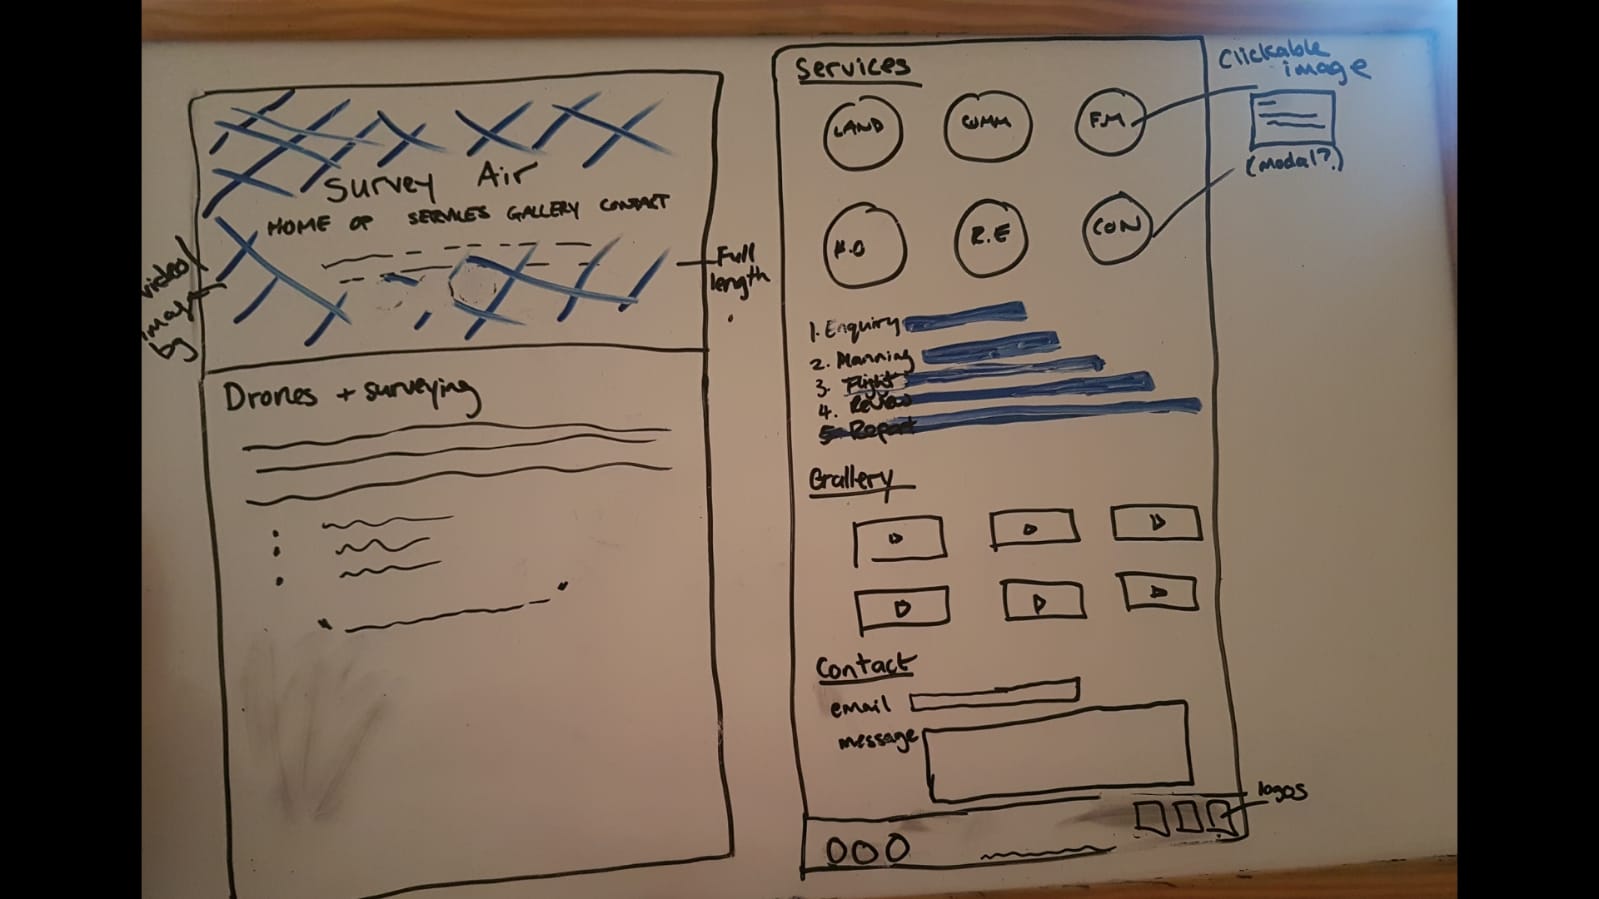 Survey Air
HOME OP SERVICES GALLERY CONTACT
video/
image
bg
Full
length
Drones + surveying
Services
LAND
COMM
F.M
R.E
CON
Clickable
image
(modal?)
1. Enquiry
2. Planning
3. Flight
4. Review
5. Report
Gallery
Contact
email
message
logos